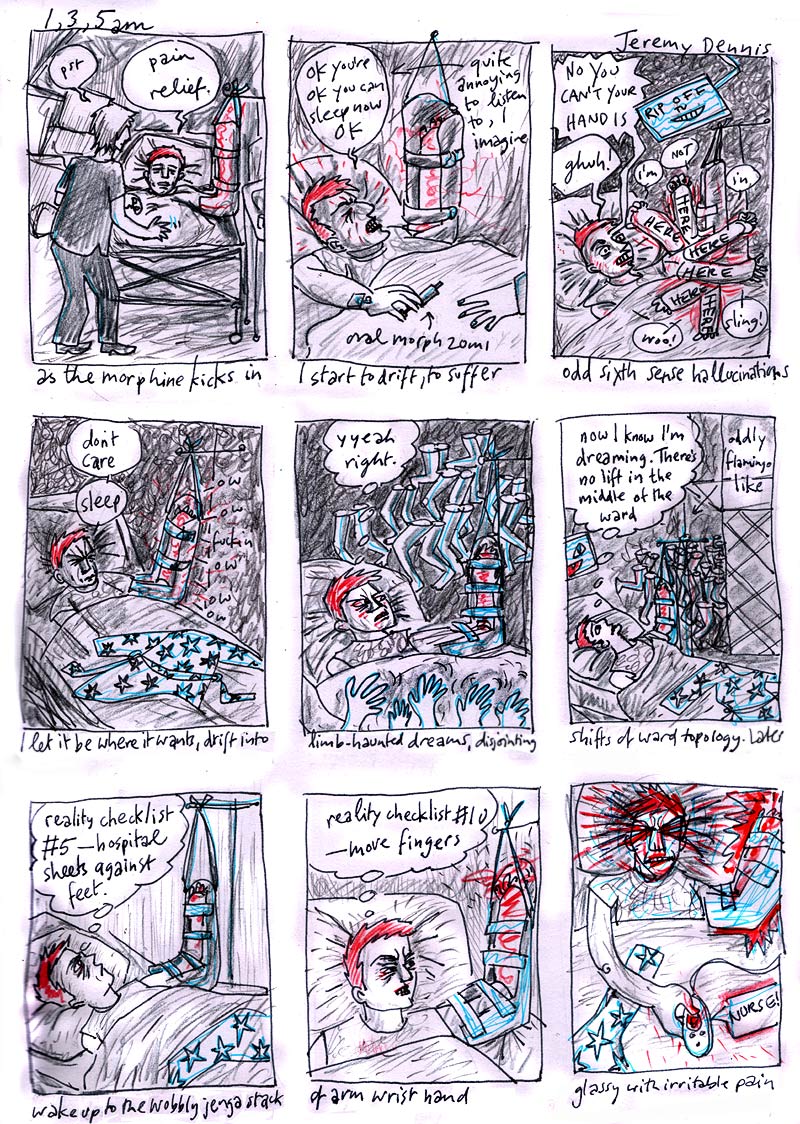 1, 3, 5am
Jeremy Dennis
pst
pain
relief.
as the morphine kicks in
OK you're
OK you can
sleep now
OK
quite
annoying
to listen
to, I
imagine
oral morph 20ml
I start to drift, to suffer
NO YOU
CAN'T YOUR
HAND IS
RIP OFF
ghuh!
I'm
NOT
in
HERE
HERE
HERE
HERE
HERE
HERE
woo!
sling!
odd sixth sense hallucinations
don't
care
sleep
ow
ow
fuckin
ow
ow
ow
I let it be where it wants, drift into
yyeah
right.
limb-haunted dreams, disjointing
now I know I'm
dreaming. There's
no lift in the
middle of the
ward
oddly
flamingo
like
shifts of ward topology. Later
reality checklist
#5 — hospital
sheets against
feet.
wake up to the wobbly jenga stack
reality checklist #10
— move fingers
of arm wrist hand
NURSE!
glassy with irritable pain